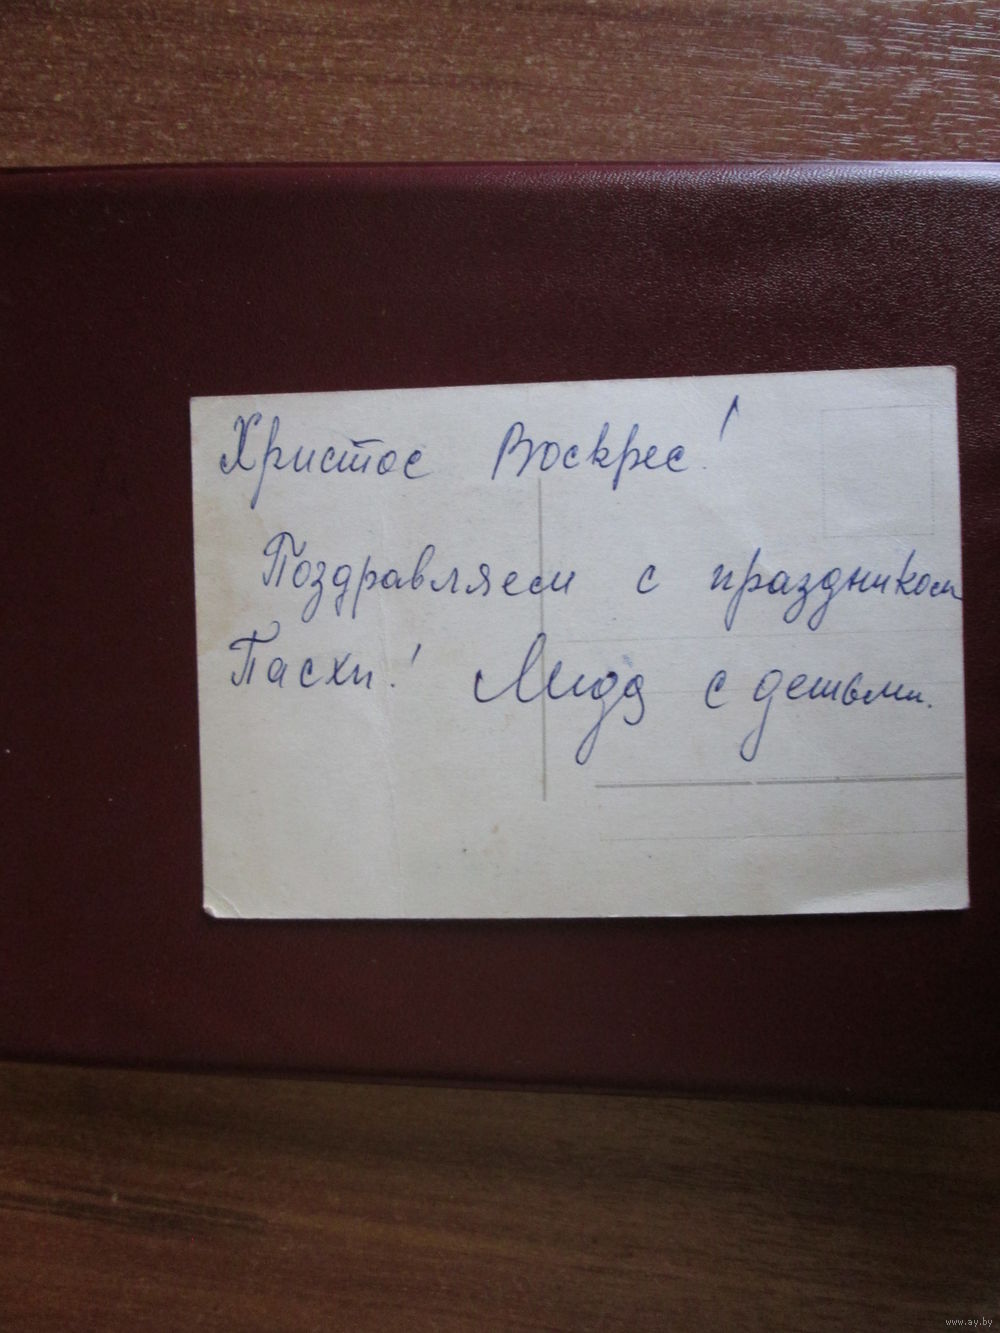 Христос Воскрес!
Поздравляем с праздником
Пасхи! Лида с детьми.
www.ay.by